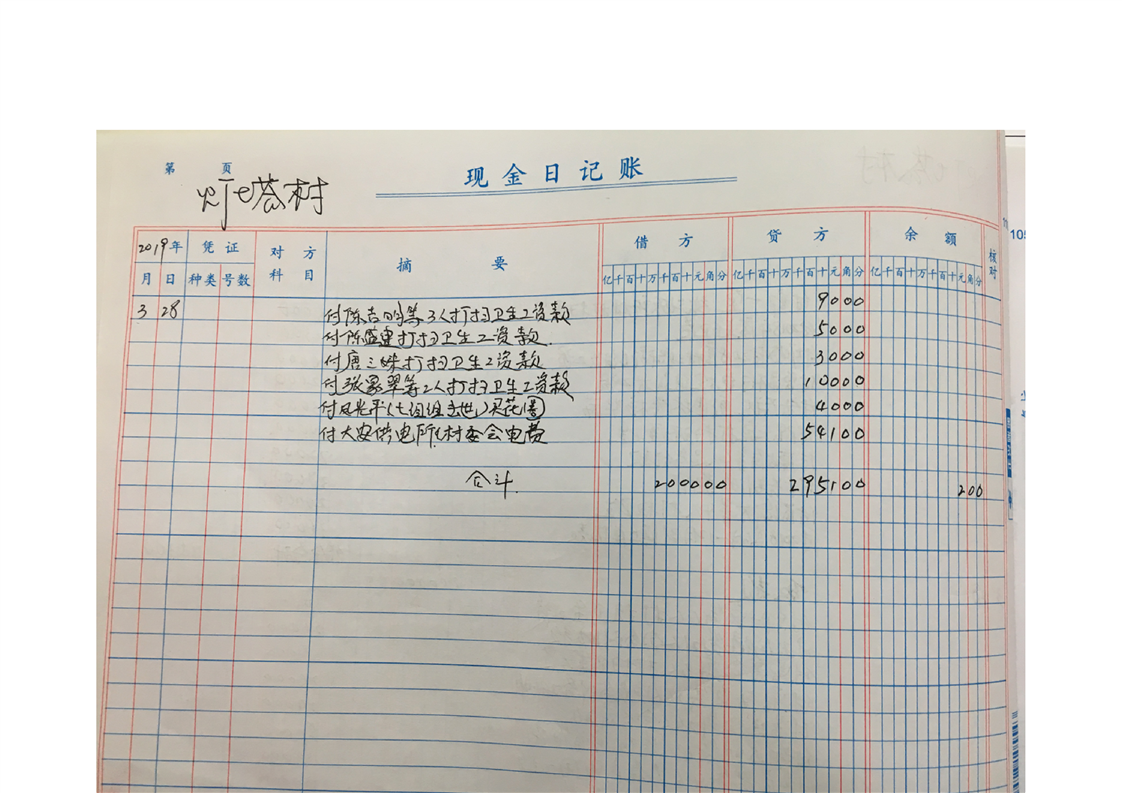 第 页
现金日记账
灯塔村
2019年 凭证 对方科目 摘要 借方 贷方 余额 核对
月 日 种类 号数 亿千百十万千百十元角分 亿千百十万千百十元角分 亿千百十万千百十元角分
3 28 付陈吉明等3人打扫卫生工资款 9000
付陈盛建打扫卫生工资款 5000
付唐三妹打扫卫生工资款 3000
付张家翠等2人打扫卫生工资款 10000
付 光平(七组组 )买花圈 4000
付大安供电所村委会电费 54100
合计 200000 295100 200
105